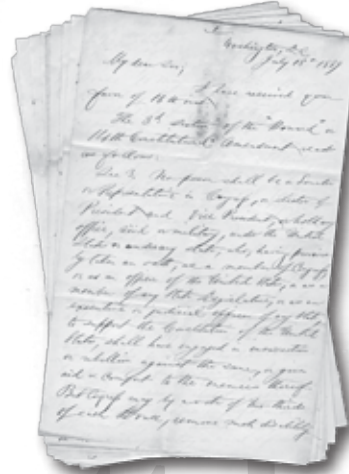 Washington, D.C.
July 18th 1867
My dear Sir,
I have received your
favor of 16th inst.
The 3d section of the "Howard" or
14th Constitutional Amendment reads
as follows:
Sec 3. No person shall be a Senator
or Representative in Congress, or elector of
President and Vice President, or hold any
office, civil or military, under the United
States or under any State, who, having previous-
ly taken an oath, as a member of Congress,
or as an officer of the United States, or as a
member of any State Legislature, or as an
executive or judicial officer of any State
to support the Constitution of the United
States, shall have engaged in insurrection
or rebellion against the same, or given
aid or comfort to the enemies thereof.
But Congress may by a vote of two thirds
of each House, remove such disability.